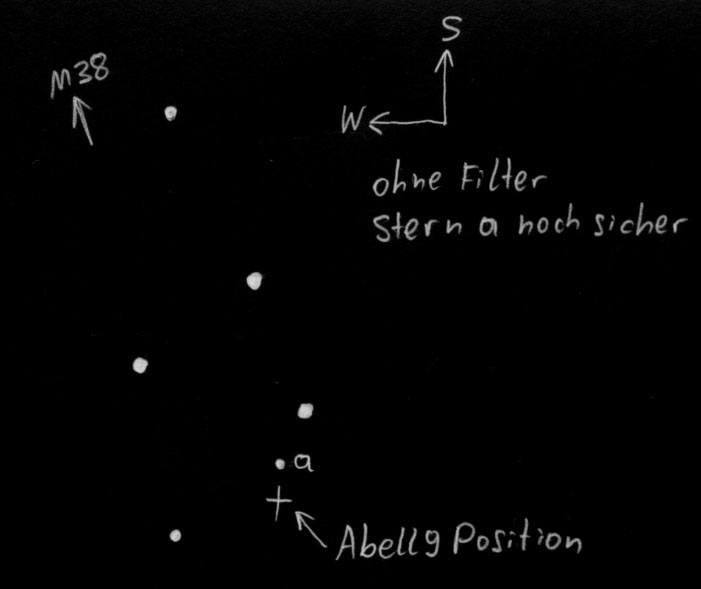 S
M38
W
ohne Filter
Stern a noch sicher
a
Abell9 Position